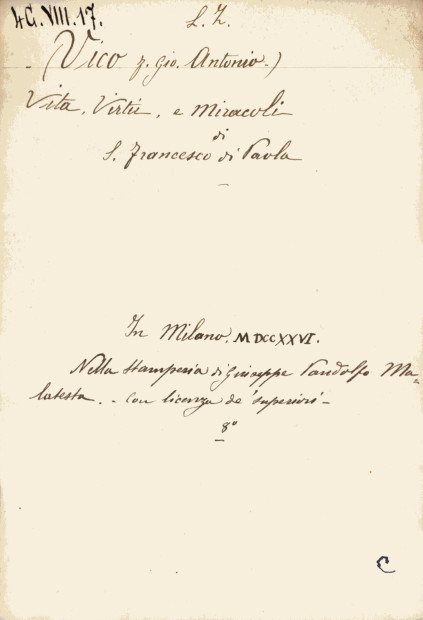 4G.VIII.17.
L. Z.
(Vico p. Gio. Antonio.)
Vita, Virtù, e Miracoli
di
S. Francesco di Paola
In Milano, MDCCXXVI.
Nella Stamperia di Giuseppe Pandolfo Ma=
latesta. - con licenza de' superiori -
8°
C